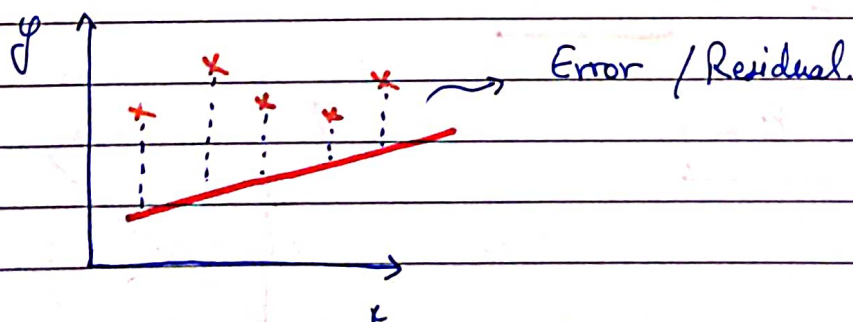 y
Error / Residual.
x